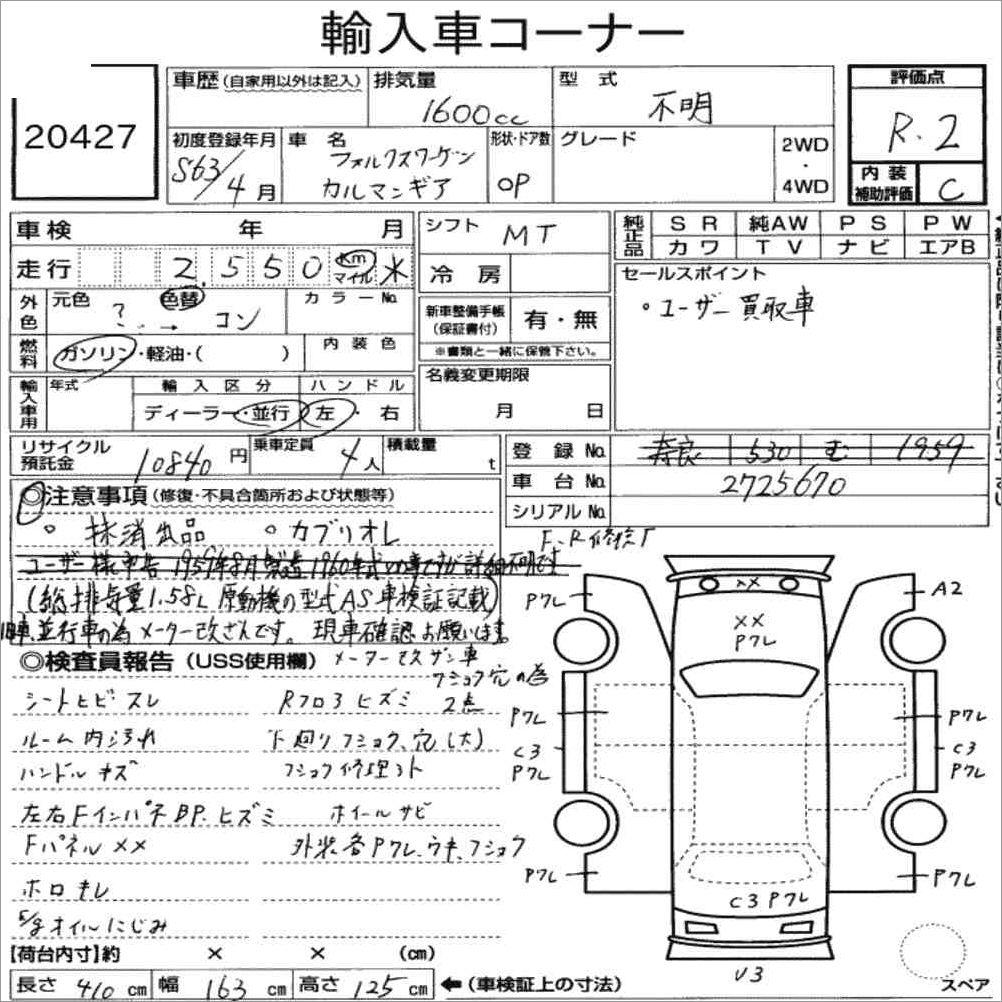 輸入車コーナー
20427
車歴 (自家用以外は記入)
排気量
1600cc
型 式
不明
評価点
R.2
内装
補助評価
C
初度登録年月
S63/4月
車 名
フォルクスワーゲン
カルマンギア
形状・ドア数
OP
グレード
2WD
・
4WD
車検 年 月
走行 2,550 Km マイル 米
外色
元色 ? → 色替 コン
カラーNo.
燃料
ガソリン・軽油・( )
内装色
輸入車用
年式
輸入区分
ディーラー・並行
ハンドル
左・右
シフト MT
冷房
新車整備手帳
(保証書付)
有・無
※書類と一緒に保管下さい。
名義変更期限
月 日
純正品
SR 純AW PS PW
カワ TV ナビ エアB
セールスポイント
・ユーザー買取車
リサイクル
預託金
10840円
乗車定員
4人
積載量
t
登録No. 奈良 530 む 1959
車台No. 2725670
シリアルNo.
◎注意事項 (修復・不具合箇所および状態等)
○ 抹消出品 ○ カブリオレ
ユーザー様申告 1959年8月製造1960年式の車ですが詳細不明です
(総排気量1.58L 原動機の型式AS 車検証記載)
並行車の為メーター改ざんです。現車確認お願います。
◎検査員報告 (USS使用欄)
メーター改ザン車
フショク穴の為
シートヒビ スレ
Rフロアヒズミ 2点
ルーム内汚れ
下廻りフショク、穴(大)
ハンドルキズ
フショク修理
左右FインパネBP.ヒズミ
ホイールサビ
Fパネル××
外装各Pワレ、ウキ、フショク
ホロキレ
E/gオイルにじみ
【荷台内寸】約 × × (cm)
長さ 410 cm 幅 163 cm 高さ 125 cm ←(車検証上の寸法)
F、R修検
Pワレ
××
A2
××
Pワレ
Pワレ
Pワレ
C3
Pワレ
C3
Pワレ
Pワレ
Pワレ
C3 Pワレ
U3
スペア